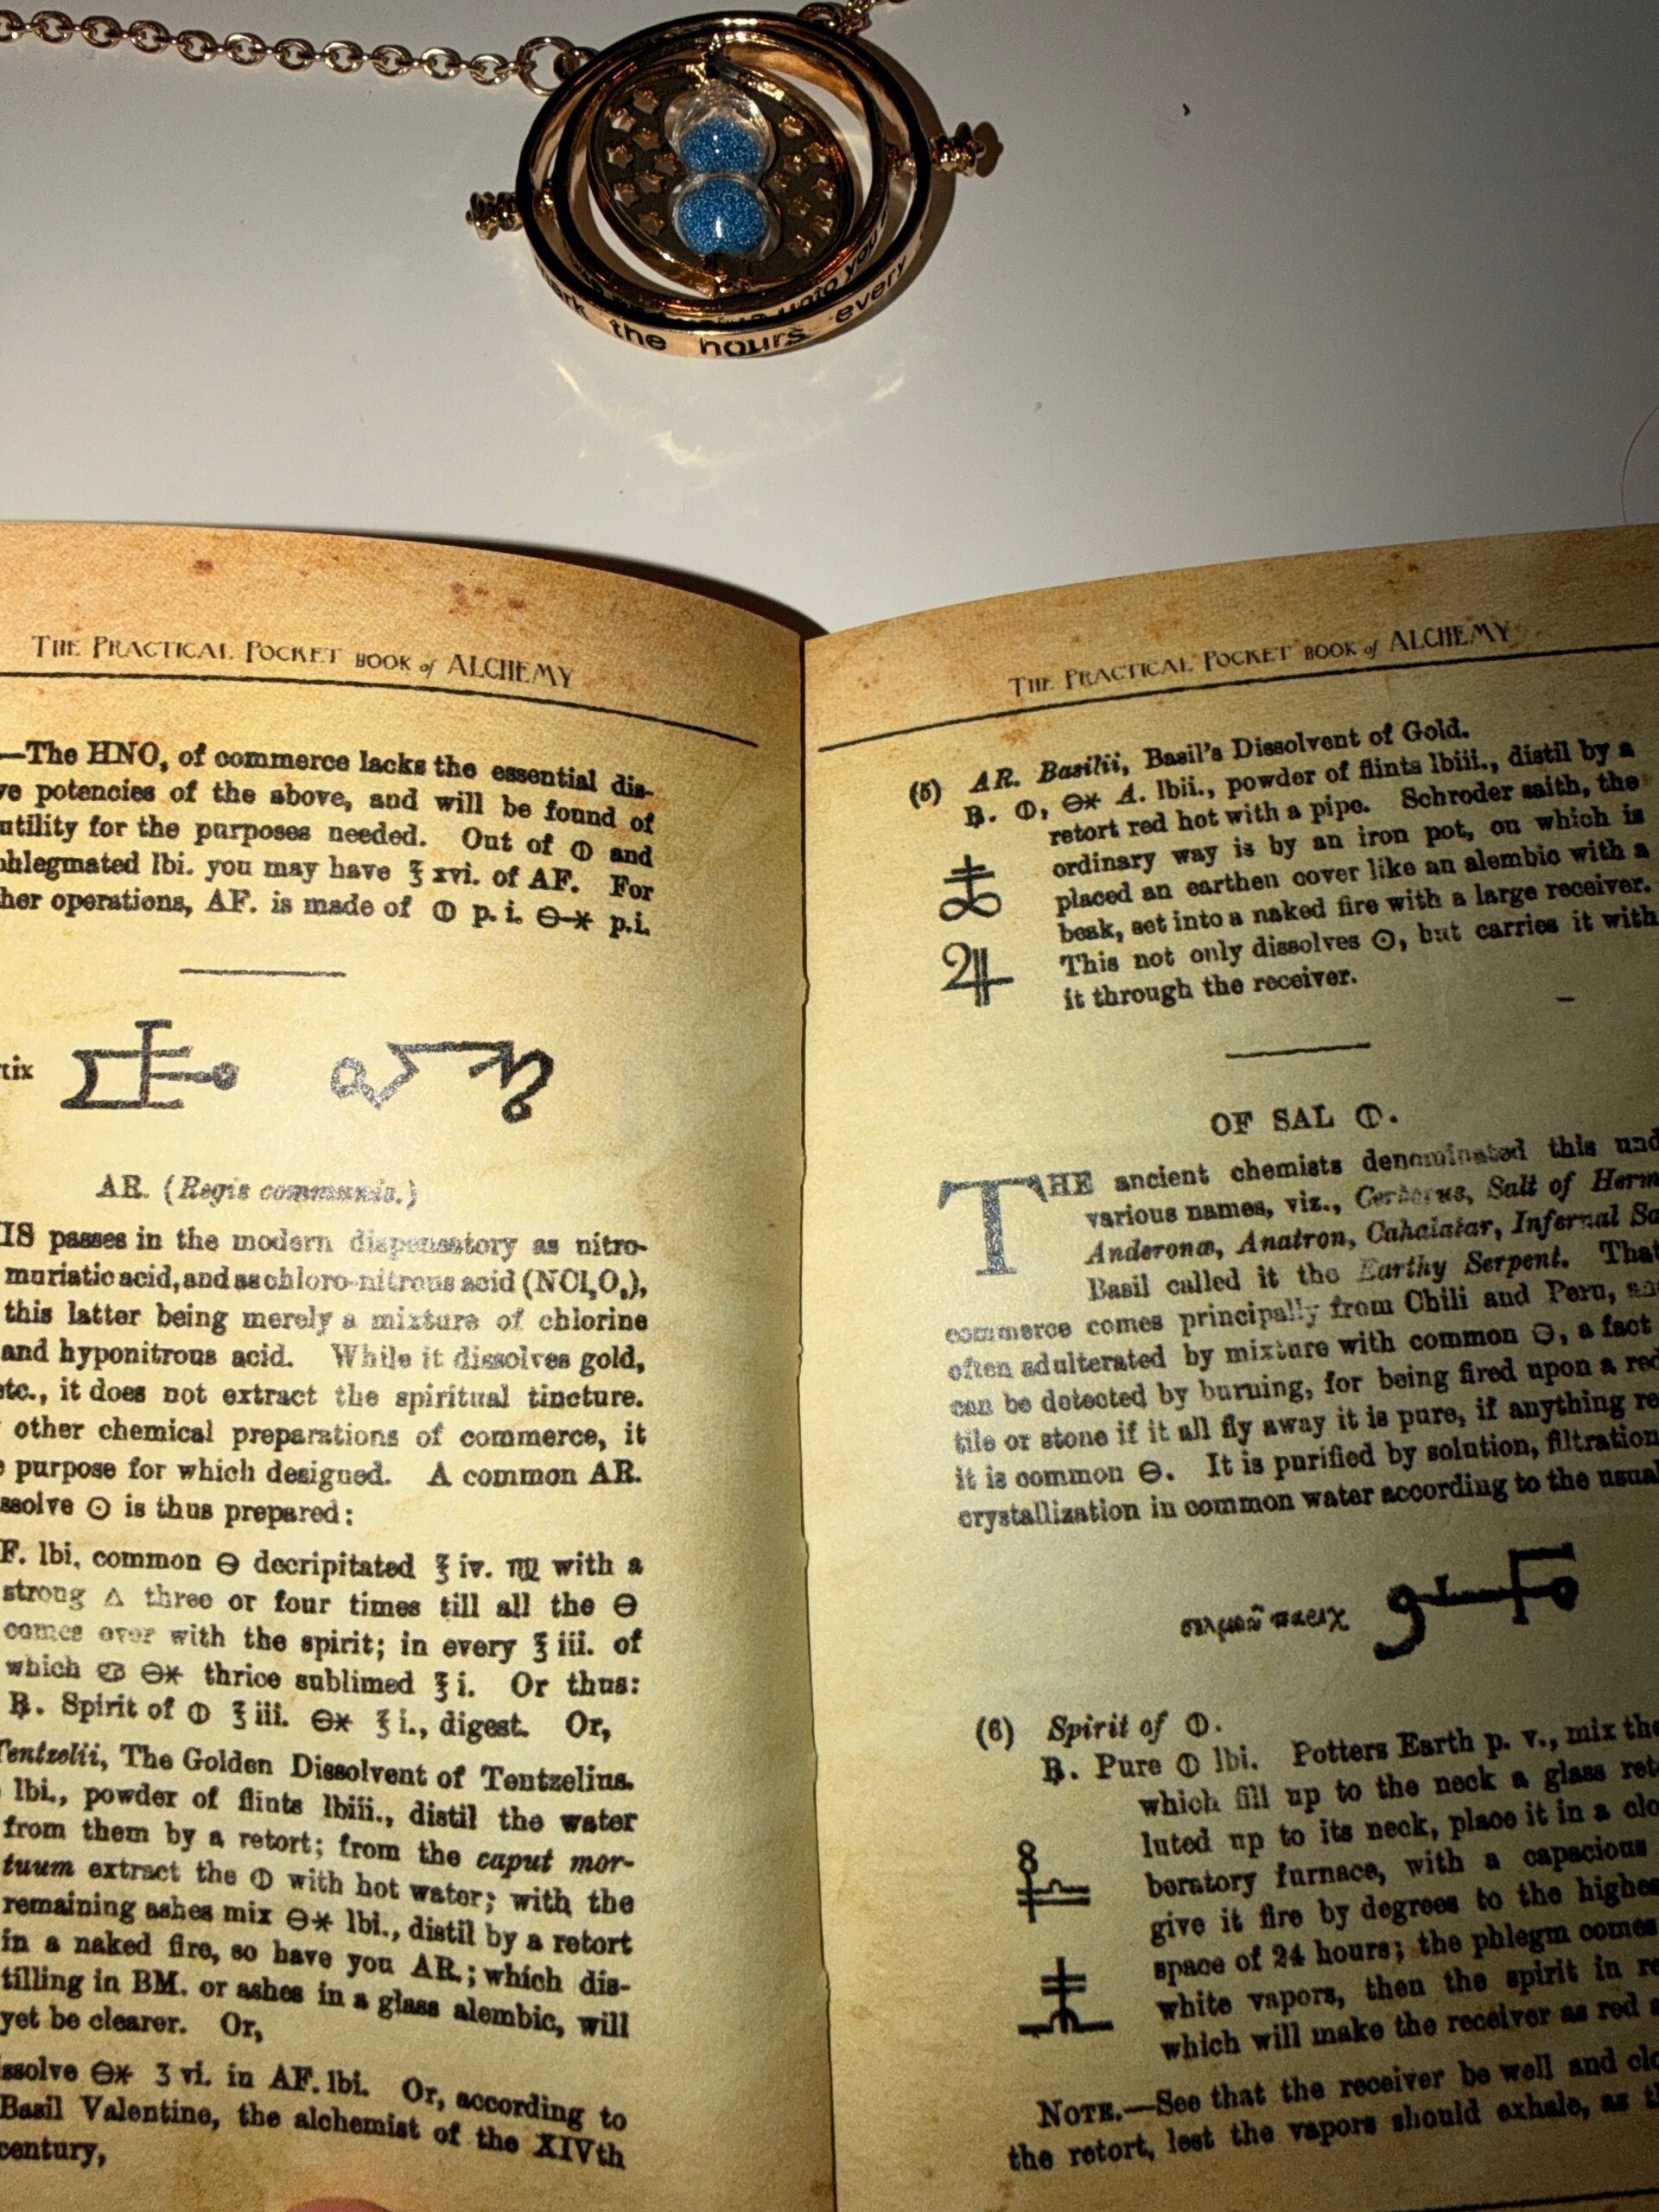 mark the hours every
unto you
THE PRACTICAL POCKET BOOK of ALCHEMY
—The HNO, of commerce lacks the essential dis-
potencies of the above, and will be found of
utility for the purposes needed. Out of 🜕 and
phlegmated lbi. you may have ℥ xvi. of AF. For
her operations, AF. is made of 🜕 p. i. ⊖-* p.i.
AR. (Regis communis.)
IS passes in the modern dispensatory as nitro-
muriatic acid, and as chloro-nitrous acid (NCl,O,),
this latter being merely a mixture of chlorine
and hyponitrous acid. While it dissolves gold,
etc., it does not extract the spiritual tincture.
other chemical preparations of commerce, it
purpose for which designed. A common AR.
ssolve ☉ is thus prepared:
F. lbi, common ⊖ decripitated ℥ iv. ♍ with a
strong △ three or four times till all the ⊖
comes over with the spirit; in every ℥ iii. of
which ♋ ⊖* thrice sublimed ℥ i. Or thus:
℞. Spirit of 🜕 ℥ iii. ⊖* ℥ i., digest. Or,
Tentzelii, The Golden Dissolvent of Tentzelius.
lbi., powder of flints lbiii., distil the water
from them by a retort; from the caput mor-
tuum extract the 🜕 with hot water; with the
remaining ashes mix ⊖* lbi., distil by a retort
in a naked fire, so have you AR.; which dis-
tilling in BM. or ashes in a glass alembic, will
yet be clearer. Or,
ssolve ⊖* ʒ vi. in AF. lbi. Or, according to
Basil Valentine, the alchemist of the XIVth
century,
THE PRACTICAL POCKET BOOK of ALCHEMY
(5) AR. Basilii, Basil's Dissolvent of Gold.
℞. 🜕, ⊖* A. lbii., powder of flints lbiii., distil by a
retort red hot with a pipe. Schroder saith, the
ordinary way is by an iron pot, on which is
placed an earthen cover like an alembic with a
beak, set into a naked fire with a large receiver.
This not only dissolves ☉, but carries it with
it through the receiver.
OF SAL 🜕.
THE ancient chemists denominated this und
various names, viz., Cerberus, Salt of Herm
Anderonæ, Anatron, Cahalatar, Infernal Sa
Basil called it the Earthy Serpent. That
commerce comes principally from Chili and Peru, and
often adulterated by mixture with common ⊖, a fact
can be detected by burning, for being fired upon a red
tile or stone if it all fly away it is pure, if anything re
it is common ⊖. It is purified by solution, filtration
crystallization in common water according to the usual
(6) Spirit of 🜕.
℞. Pure 🜕 lbi. Potters Earth p. v., mix the
which fill up to the neck a glass ret
luted up to its neck, place it in a clo
beratory furnace, with a capacious
give it fire by degrees to the highes
space of 24 hours; the phlegm comes
white vapors, then the spirit in re
which will make the receiver as red a
NOTE.—See that the receiver be well and clo
the retort, lest the vapors should exhale, as th